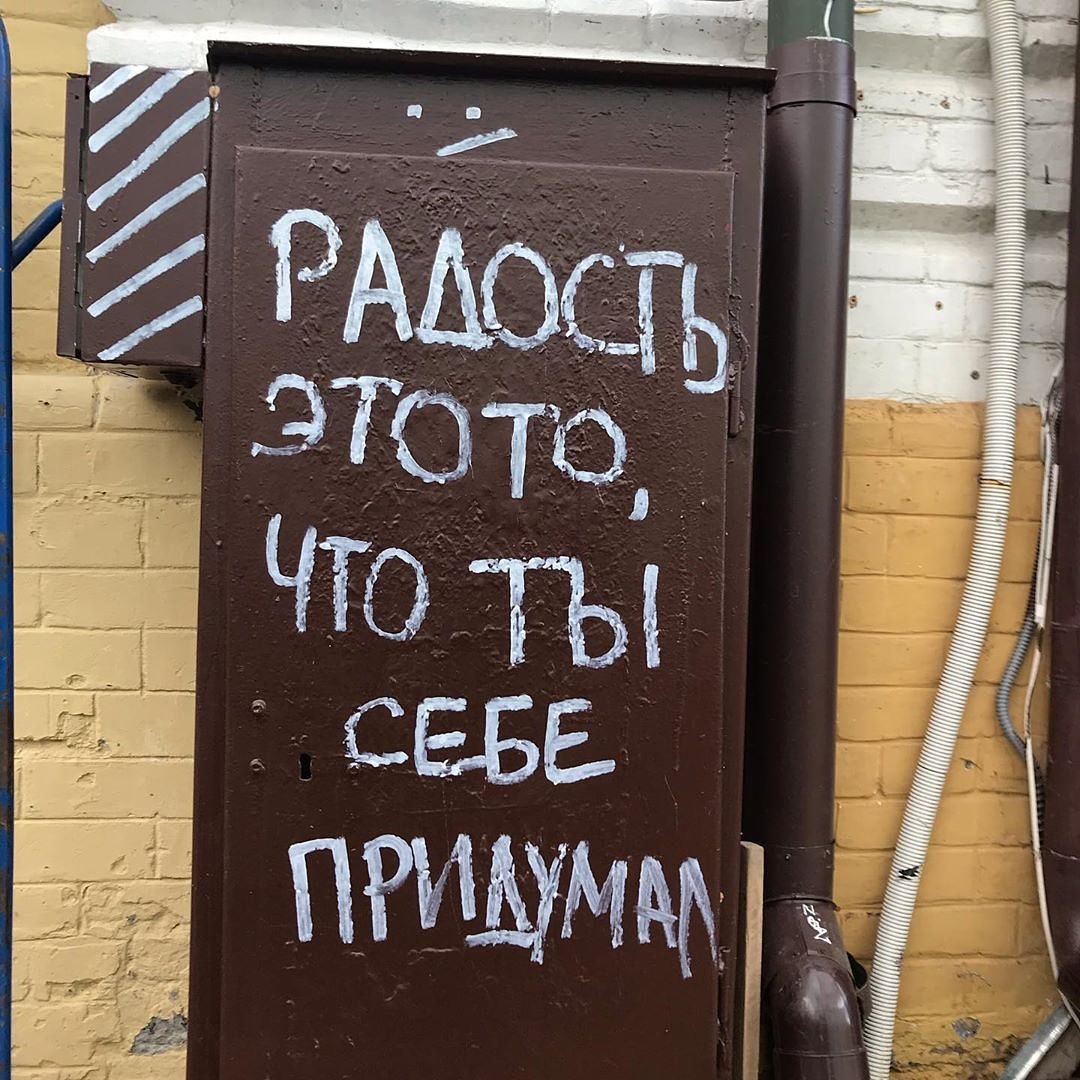 РАДОСТЬ
ЭТО ТО,
ЧТО ТЫ
СЕБЕ
ПРИДУМАЛ